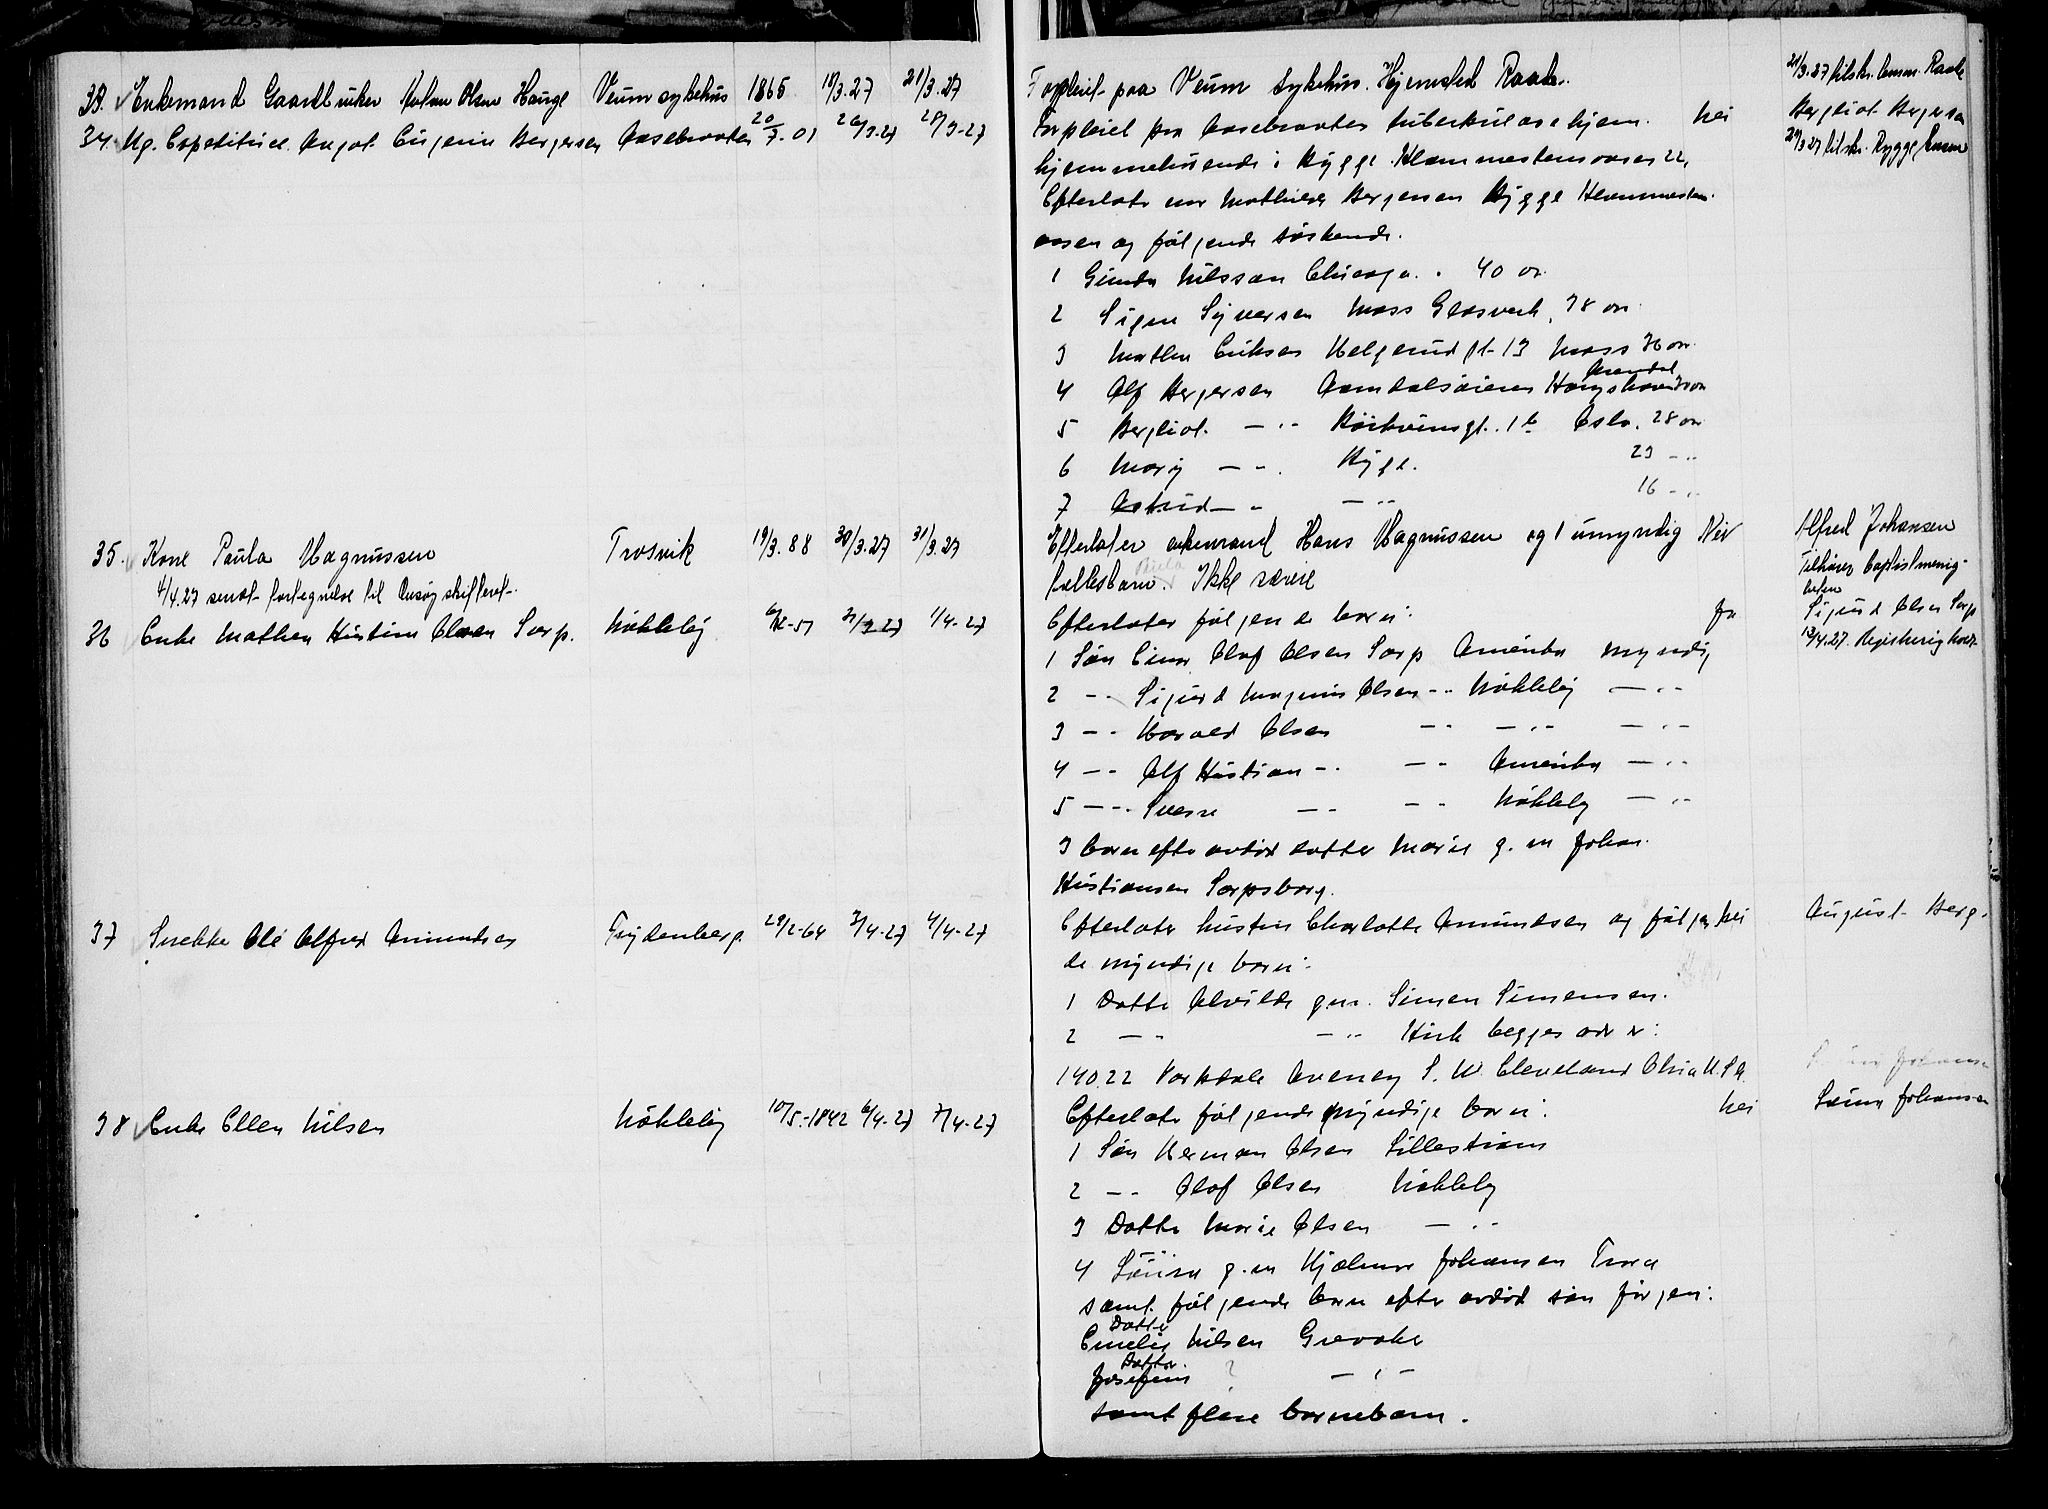 33. Enkemand Gaardbruker Johan Olsen Hauge Veum sykehus 1865 18/3.27 21/3.27 Forpleiet paa Veum Sykehus. Hjemsted Raade. 21/3.27 tilskr. lensm. Raade
34. Ug. Expeditrice Aagot Eugenie Bergersen Aasebraaten 20/7.01 26/3-27 28/3-27 Forpleiet paa Aasebraaten tuberkulosehjem. Nei Bergliot Bergersen
hjemmehørende i Rygge 22, 29/3 27 tilskr. Rygge lensm
Efterlater mor Mathilde Bergersen Rygge
aasen og følgende søskende.
1 Gunda Nilssen Chicago. 40 aar
2 Signe Syversen Moss Glasverk, 38 aar
3 Mathea Eriksen Helgerud gt. 13 Moss 36 aar
4 Alf Bergersen Arendal
5 Bergliot —"— gt. 1 b Oslo. 28 aar
6 Mary —"— Rygge. 23 —"—
7 Astrid —"— —"— 16 —"—
35. Kone Paula Magnussen Trosvik 19/3.88 30/3.27 31/3.27 Efterlater enkemand Hans Magnussen og 1 umyndig Nei Alfred Johansen
4/4.27 sendt fortegnelse til Onsøy skifteret. fællesbarn. Ikke særeie Tilhører baptistmenig-
heten
36 Enke Mathea Kristine Olsen Sarp. Nøkleby 31/3 27 1/4-27 Efterlater følgende barn: Ja Sigurd Olsen Sarp
1 Søn Einar Olaf Olsen Sarp Amerika myndig 13/4.27. Registrering
2 —"— Sigurd Magnus Olsen —"— Nøkleby —"—
3 —"— Harald Olsen —"— —"— —"—
4 —"— Alf Kristian —"— —"— Amerika —"—
5 —"— Sverre —"— —"— Nøkleby —"—
3 barn efter avdød datter Marie g. m Johan
Kristiansen Sarpsborg.
37 Snekker Ole Alfred Amundsen Frydenberg 29/2-64 3/4-27 4/4-27 Efterlater hustru Charlotte Amundsen og følgen Nei August Berg.
de myndige barn:
1 Datter Alvilde g.m. Simen Simensen.
2 —"— —"— Kirk begges adr er:
140.22 Aveney S. W. Cleveland Ohio U.S.A.
38 Enke Ellen Nilsen Nøkleby 10/5-1842 6/4-27 7/4-27 Efterlater følgende myndige barn: Nei Lovise Johansen
1 Søn Herman Olsen Lillestrøm
2 —"— Olaf Olsen Nøkleby
3 Datter Marie Olsen —"—
4 Lovise g.m Hjalmar Johansen
samt følgende barn efter avdød søn Jørgen:
Datter
Emelie Nilsen Greaaker
Datter
Josefine ? —"—
samt flere barnebarn.